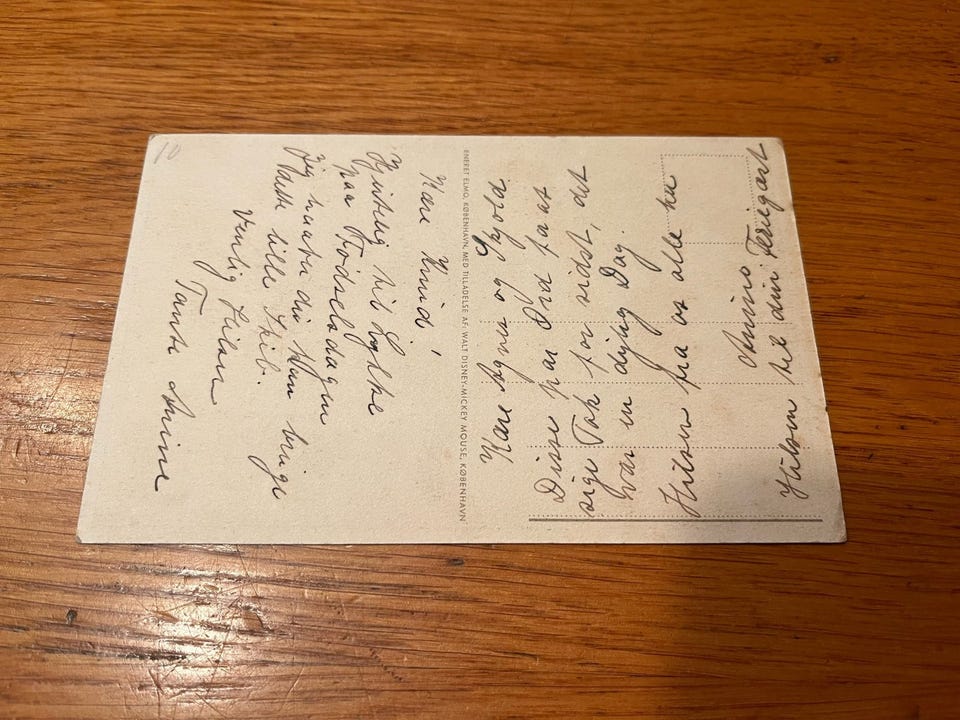 10
Kære Knud,
Hjertelig til Lykke
paa Fødselsdagen
Jeg haaber du kan bruge
dette lille Skib.
Venlig Hilsen
Tante Anine
ENERET ELMO, KØBENHAVN, MED TILLADELSE AF: WALT DISNEY-MICKEY MOUSE, KØBENHAVN
Kære og Skjold
Disse par Ord for at
sige Tak for sidst, det
var en dejlig Dag.
Hilsen fra os alle her
Anine
Hilsen til din Feriegæst